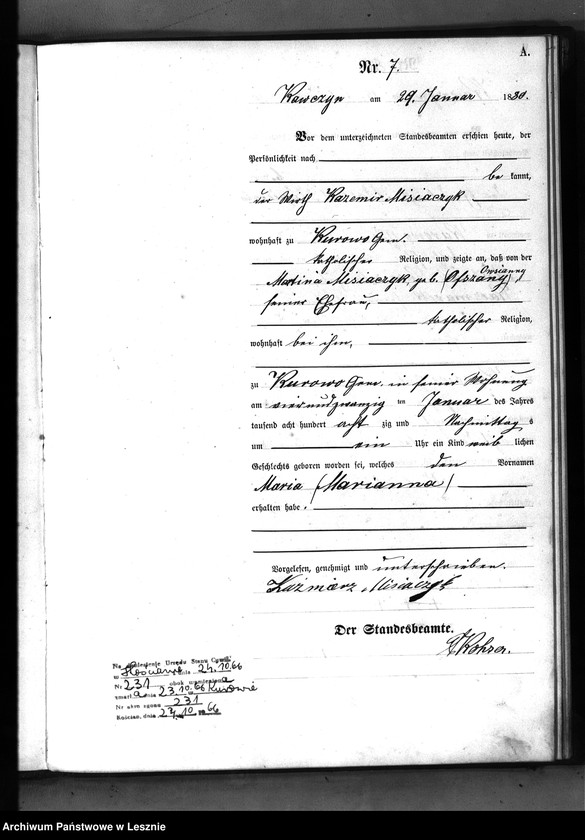 A.
Nr. 7.
Kawczyn am 29. Januar 1880.
Vor dem unterzeichneten Standesbeamten erschien heute, der
Persönlichkeit nach
be kannt,
der Wirth Kazemir Misiaczyk
wohnhaft zu Kurowo Gem.
katholischer Religion, und zeigte an, daß von der
Owsianny
Martina Misiaczyk, geb. (Ofszany)
seiner Ehefrau,
katholischer Religion,
wohnhaft bei ihm,
zu Kurowo Gem. in seiner Wohnung
am vierundzwanzig ten Januar des Jahres
tausend acht hundert acht zig und Nachmittag s
um ein Uhr ein Kind weib lichen
Geschlechts geboren worden sei, welches den Vornamen
Maria (Marianna)
erhalten habe.
Vorgelesen, genehmigt und unterschrieben.
Kaźmierz Misiaczyk
Der Standesbeamte.
Rohrer.
Na Urzędu Stanu Cywil.
w dnia 24.10.66
Nr 231 obok wymieniona
zmarła dnia 23.10.66 Kurowie
Nr aktu zgonu 231
Kościan, dnia 24.10.1966
Archiwum Państwowe w Lesznie